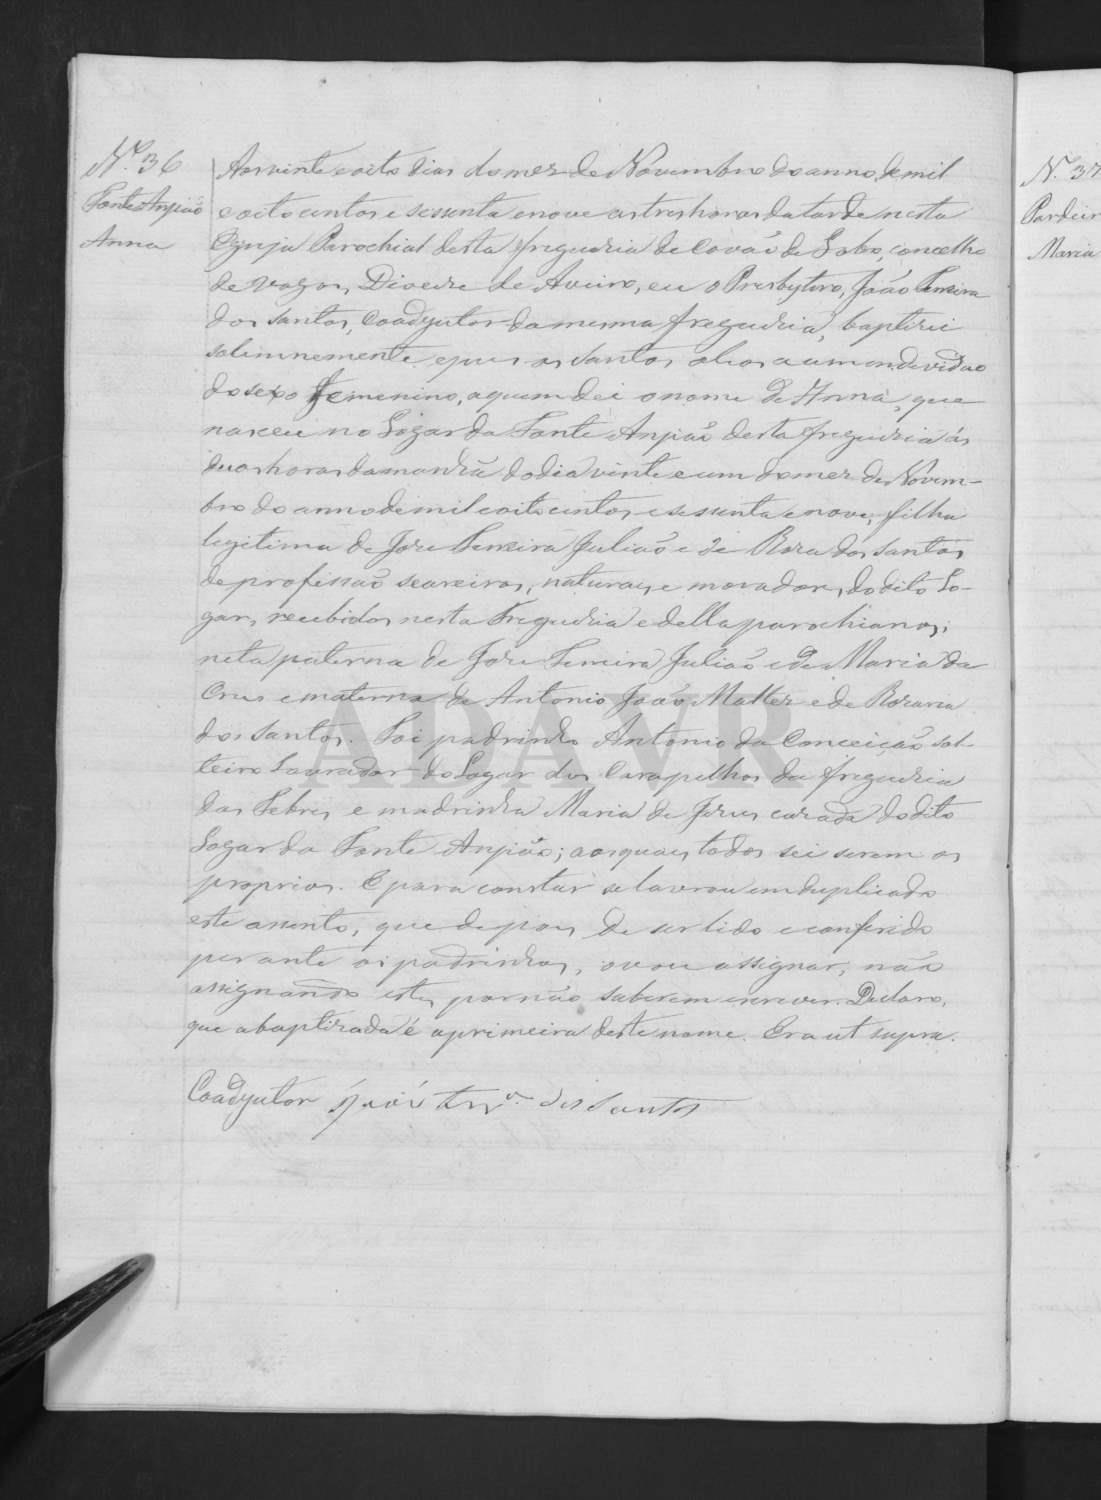 Nº. 36
Fonte Anjião
Anna
Aos vinte e oito dias do mez de Novembro do anno de mil
e oito centos e sessenta e nove as tres horas da tarde nesta
Egreja Parochial desta freguezia de Covão do Lobo, concelho
de Vagos, Diocese de Aveiro, eu o Presbytero, João Ferreira
dos Santos, Coadjutor da mesma freguezia, baptizei
solemnemente e puz os santos oleos a um individuo
do sexo femenino, a quem dei o nome de Anna, que
nasceu no Logar da Fonte Anjião desta freguezia ás
duas horas da manhã do dia vinte e um do mez de Novem-
bro do anno de mil e oito centos e sessenta e nove, filha
legitima de Joze Ferreira Julião e de Roza dos Santos
de profissão seareiros, naturaes e moradores do dito Lo-
gar, recebidos nesta Freguezia e della parochianos;
neta paterna de Joze Ferreira Julião e de Maria da
Cruz e materna de Antonio João Malta e de Rozaria
dos Santos. Foi padrinho Antonio da Conceição sol-
teiro Lavrador do Logar dos Carapelhos da freguezia
das Febres e madrinha Maria de Jezus cazada do dito
Logar da Fonte Anjião; aos quaes todos sei serem os
proprios. E para constar se lavrou em duplicado
este assento, que depois de ser lido e conferido
perante os padrinhos, o vou assignar, não
assignando estes por não saberem escrever. Declaro,
que a baptizada é a primeira deste nome. Era ut supra.
Coadjutor João Ferrª. dos Santos
N. 37
Pardeir
Maria
ADAVR